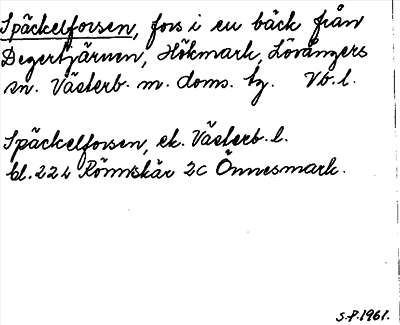 Späckelforsen, fors i en bäck från
Degertjärnen, Hökmark, Lövångers
sn. Västerb. m. doms. tg. Vb. l.
Späckelforsen, ek. Västerb. l.
bl. 22 L Rönnskär 2c Önnesmark.
S.P. 1961.